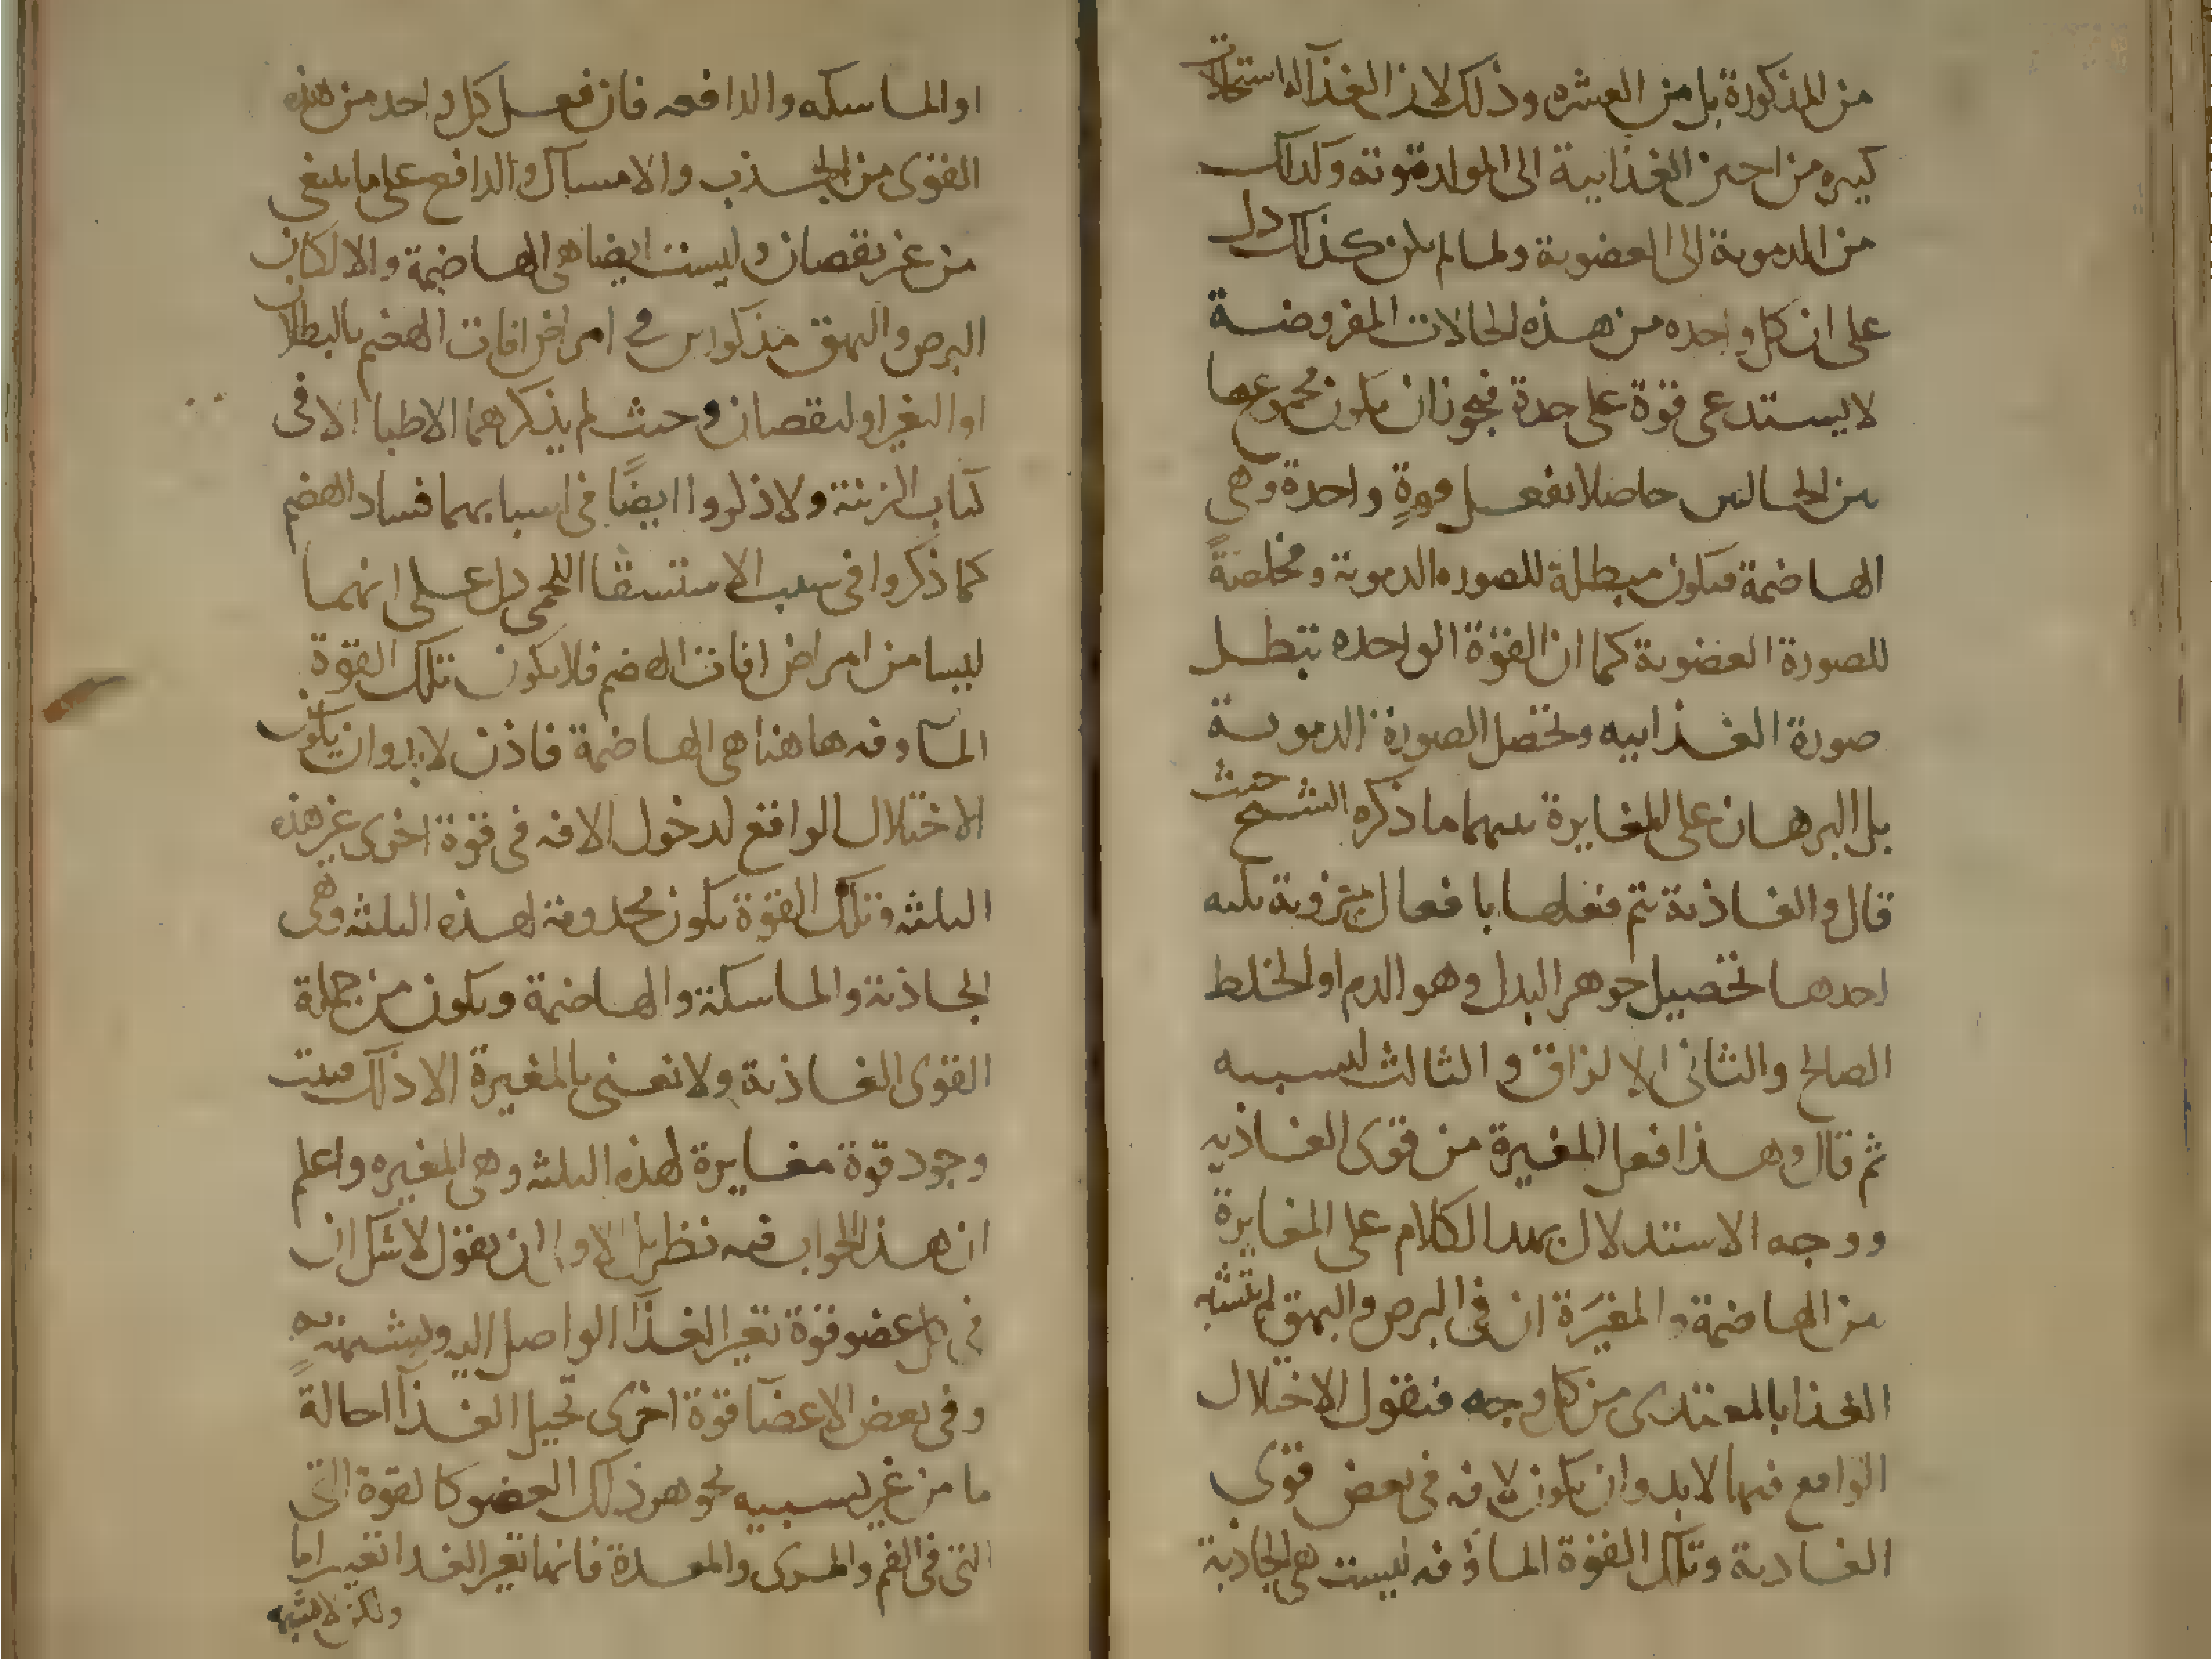 من المذكورة بل من العشره وذلك لان الغذآ له استحالات
كثيره من احين الغذايية الى المواد قوته وكذلك
من الدموية الى العضوية ولما لم يكن كذلك دل
على ان كل واحده من هذه الحالات المفروضة
لا يستدعى قوة على حدة فيجوز ان يكون مجموعها
من الحالين حاصلا بفعل قوةٍ واحدة وهى
الهاضمة فيكون مبطلة للصوره الدموية ومخلصةً
للصورة العضوية كما ان القوة الواحده تبطل
صورة الغذاييه وتحصل الصورة الدموية
بل البرهان على المغايرة بينهما ما ذكره الشيخ حيث
قال والغاذية تتم فعلها بافعال جزوية ثلثه
احدها تحصيل جوهر البدل وهو الدم او الخلط
الصالح والثانى الالزاق والثالث التشبيه
ثم قال وهذا فعل المغيرة من قوى الغاذيه
ووجه الاستدلال بهذا الكلام على المغايرة
بين الهاضمة والمغيَرة ان فى البرص والبهق لم يتشبه
الغذا بالمغتذى من كل وجه فنقول الاختلال
الواقع فيهما لابد وان يكون لافه فى بعض قوى
الغاذية وتلك القوة الماؤفه ليست هى الجاذبة
او الماسكه والدافعه فان فعل كل واحد من هذه
القوى من الجذب والامساك والدافع على ما ينبغى
من غير نقصان وليست ايضا هى الهاضمة والا لكان
البرص والبهق مذكورين فى امراض افات الهضم بالبطلان
او التغير او النقصان وحيث لم يذكرهما الاطبا الا فى
كتاب الزينة ولا ذكروا ايضًا فى اسبابهما فساد الهضم
كما ذكروا فى سبب الاستسقا اللحمى دل على انهما
ليسا من امراض افات الهضم فلا يكون تلك القوة
المآوفه هاهنا هى الهاضمة فاذن لابد وان يكون
الاختلال الواقع لدخول الافه فى قوة اخرى غير هذه
الثلثه وتلك القوة يكون مخدومة لهذه الثلثه وهى
الجاذبة والماسكة والهاضمة ويكون من جملة
القوى الغاذية ولا نعنى بالمغيرة الا ذلك فيثبت
وجود قوة مغايرة لهذه الثلثه وهى المغيره واعلم
ان هذا الجواب فيه نظر بل الاولى ان يقول لاشك ان
فى كل عضو قوة تغير الغذآ الواصل اليه ويشبهه به
وفى بعض الاعضآ قوة اخرى تحيل الغذآ احالة
ما من غير تشبيه بجوهر ذلك العضو كالقوة التى
التى فى الفم والمرى والمعدة فانها تغير الغدا تغييرا ما
ولكن لا يشبهه